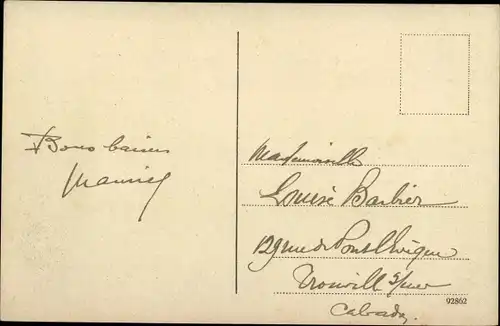 Bons baisers
Maurice
Mademoiselle
Louise Barbier
129 rue de Pont l'Evêque
Trouville s/mer
92862
Calvados